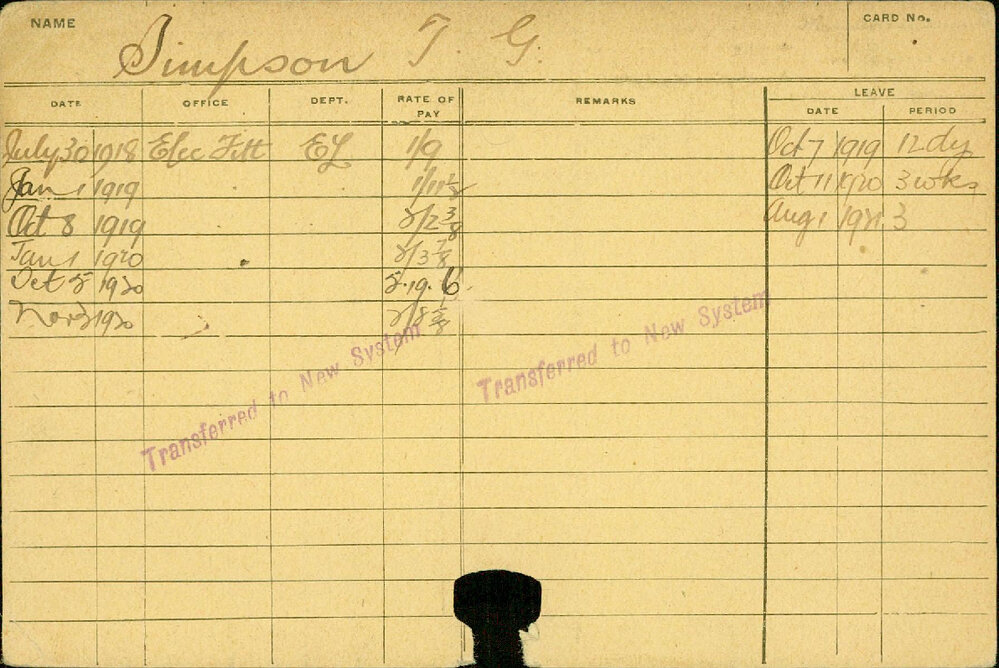 NAME Simpson T. G. CARD No.
DATE OFFICE DEPT. RATE OF PAY REMARKS LEAVE
DATE PERIOD
July 30 1918 Elec Fitt EL 1/9 Oct 7 1919 12 dys
Jan 1 1919 1/11½ Oct 11 1920 3 wks
Oct 8 1919 2/2 3/8 Aug 1 1921 3
Jan 1 1920 2/3 7/8
Oct 5 1920 5.19.6.
Nov 1920
Transferred to New System
Transferred to New System